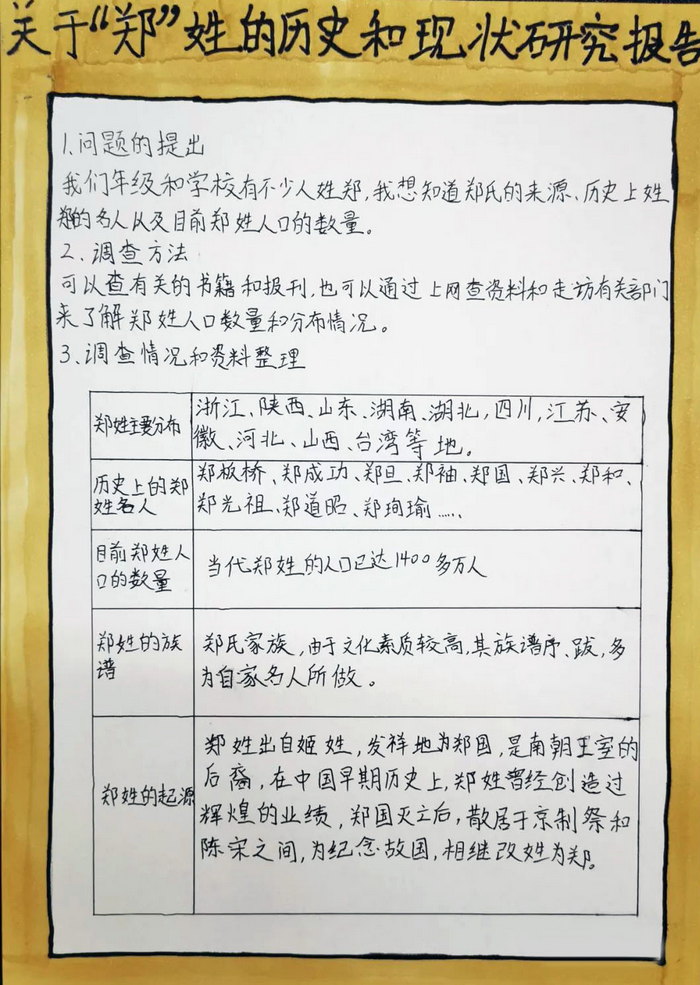 关于“郑”姓的历史和现状研究报告
1.问题的提出
我们年级和学校有不少人姓郑,我想知道郑氏的来源、历史上姓
郑的名人以及目前郑姓人口的数量。
2、调查方法
可以查有关的书籍和报刊,也可以通过上网查资料和走访有关部门
来了解郑姓人口数量和分布情况。
3、调查情况和资料整理
郑姓主要分布
浙江、陕西、山东、湖南、湖北,四川,江苏、安
徽、河北、山西、台湾等地。
历史上的郑
姓名人
郑板桥、郑成功、郑旦、郑袖、郑国、郑兴、郑和、
郑光祖、郑道昭、郑珣瑜……
目前郑姓人
口的数量
当代郑姓的人口已达1400多万人
郑姓的族
谱
郑氏家族,由于文化素质较高,其族谱序、跋,多
为自家名人所做。
郑姓的起源
郑姓出自姬姓,发祥地为郑国,是南朝王室的
后裔,在中国早期历史上,郑姓曾经创造过
辉煌的业绩,郑国灭亡后,散居于京制祭和
陈宋之间,为纪念故国,相继改姓为郑。